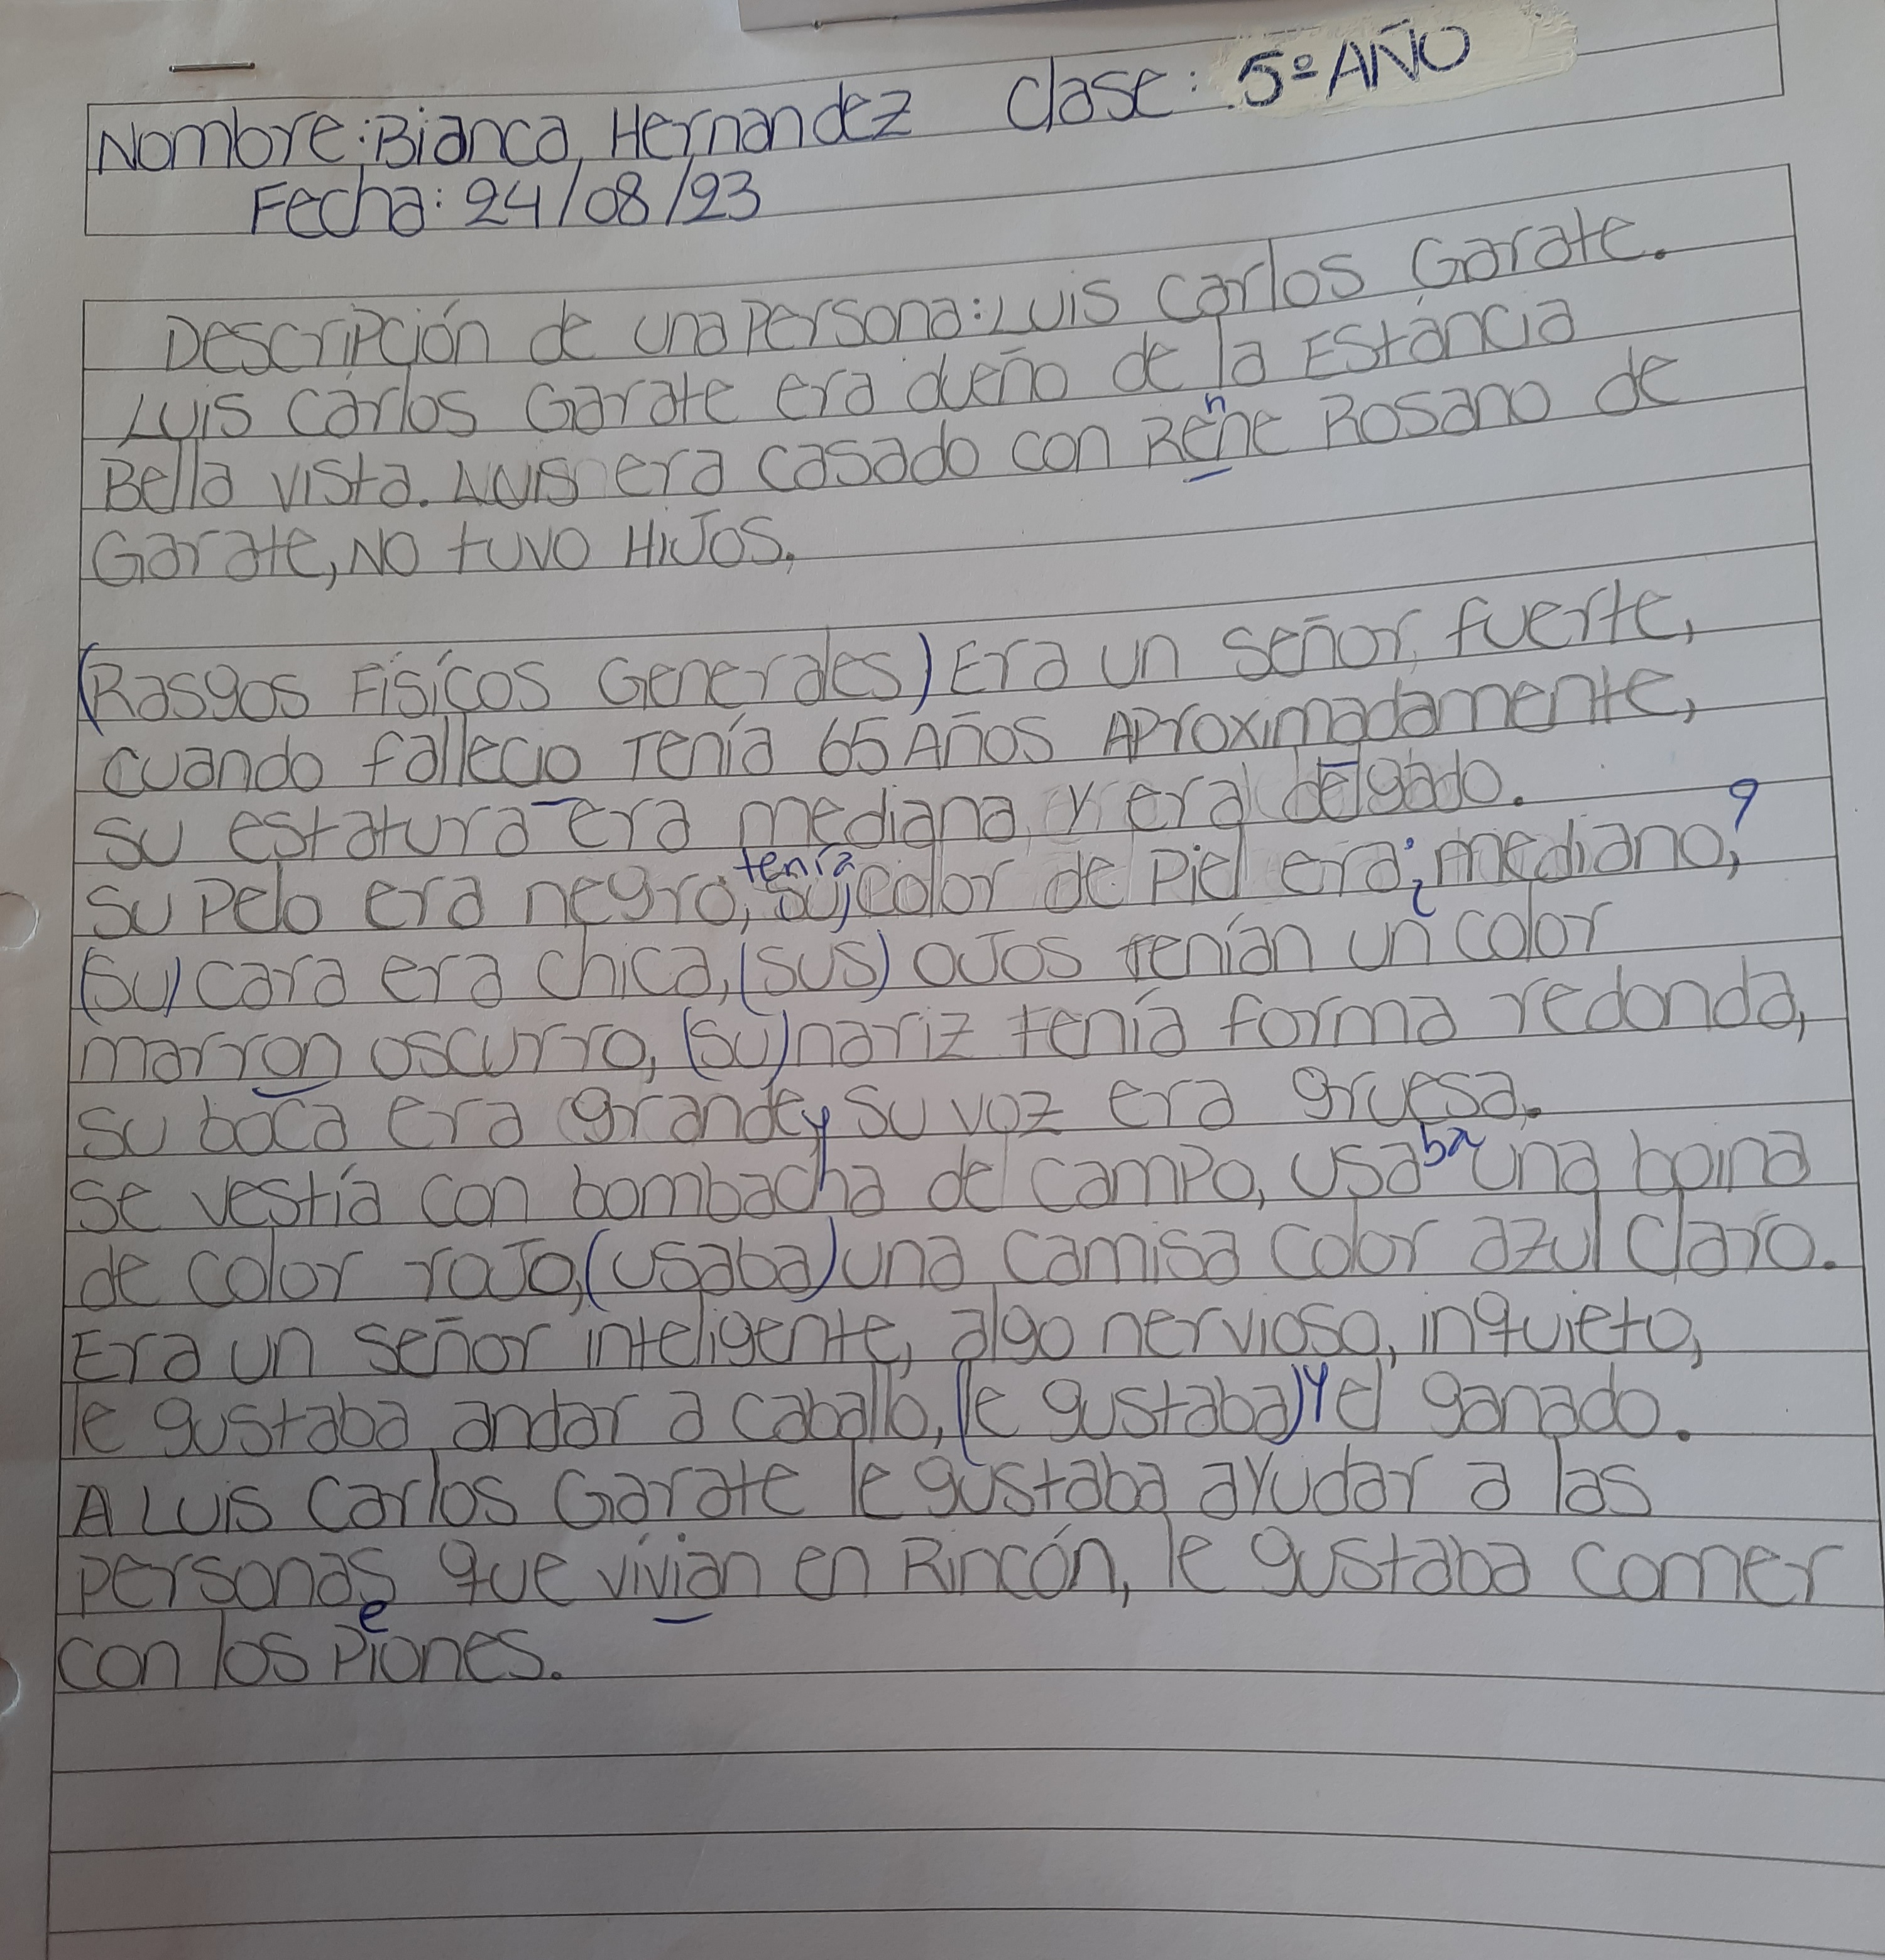 Nombre: Bianca Hernandez Clase: 5º AÑO
Fecha: 24/08/23
Descripción de una Persona: Luis Carlos Garate.
Luis Carlos Garate era dueño de la Estancia
Bella vista. Luis era casado con Rene Rosano de
n
Garate, NO tuvo HiJos.
(Rasgos Físicos Generales) Era un señor, fuerte,
cuando fallecio Tenía 65 Años Aproximadamente,
su estatura era mediana y era delgado.
su Pelo era negro, su color de Piel era; mediano, ?
tenía
(su) cara era chica, (sus) ojos tenían un color
marron oscurro, (su) nariz tenía forma redonda,
su boca era grande y su voz era gruesa.
se vestía con bombacha de campo, usaba una boina
de color rojo, (usaba) una camisa color azul claro.
Era un señor inteligente, algo nervioso, inquieto,
le gustaba andar a caballo, (le gustaba) y el ganado.
A Luis Carlos Garate le gustaba ayudar a las
personas que vivian en Rincón, le gustaba comer
con los Piones.
e